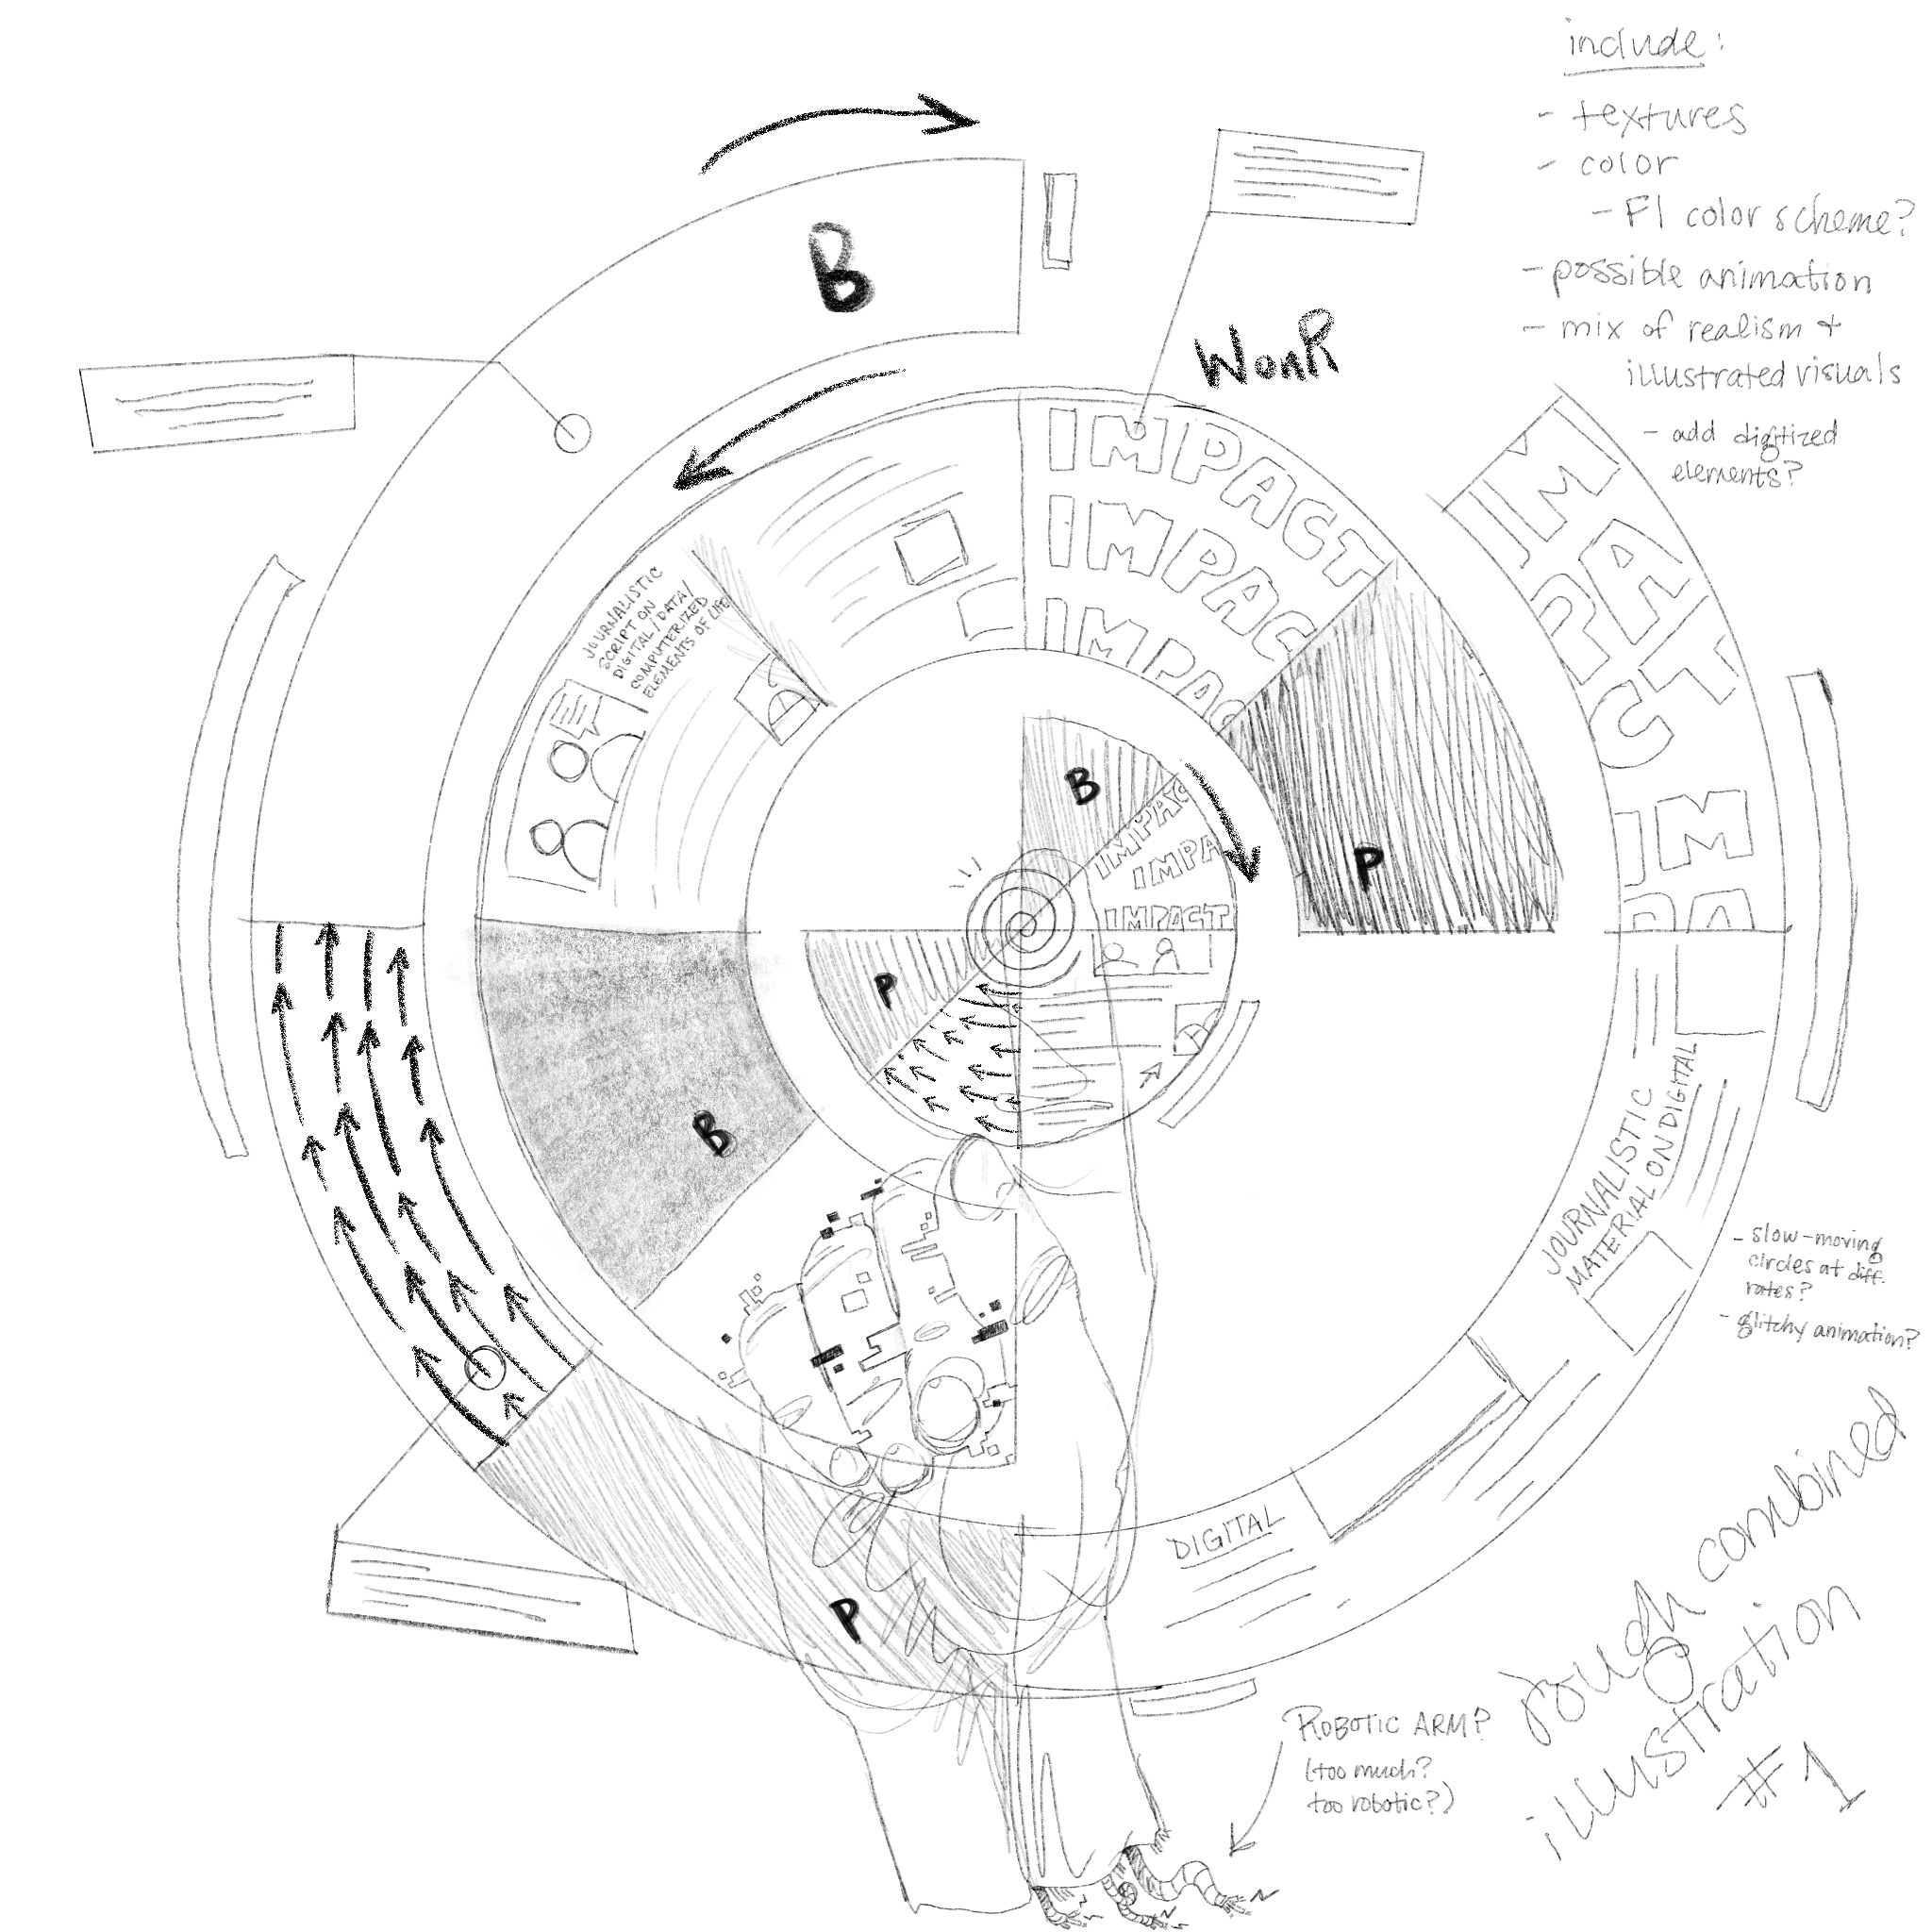 include:
- textures
- color
- FI color scheme?
- possible animation
- mix of realism +
illustrated visuals
- add digitized
elements?
B
WonR
IMPACT
IMPAC
IMPAC
IMPACT IM
PA
JOURNALISTIC
SCRIPT ON
DIGITAL/DATA/
COMPUTERIZED
ELEMENTS OF LIFE
B
IMPAC
IMPA
IMPACT
P
P
B
JOURNALISTIC
MATERIAL ON DIGITAL
- slow-moving
circles at diff.
rates?
- glitchy animation?
DIGITAL
P
ROBOTIC ARM?
(too much?
too robotic?)
rough combined
illustration
#1